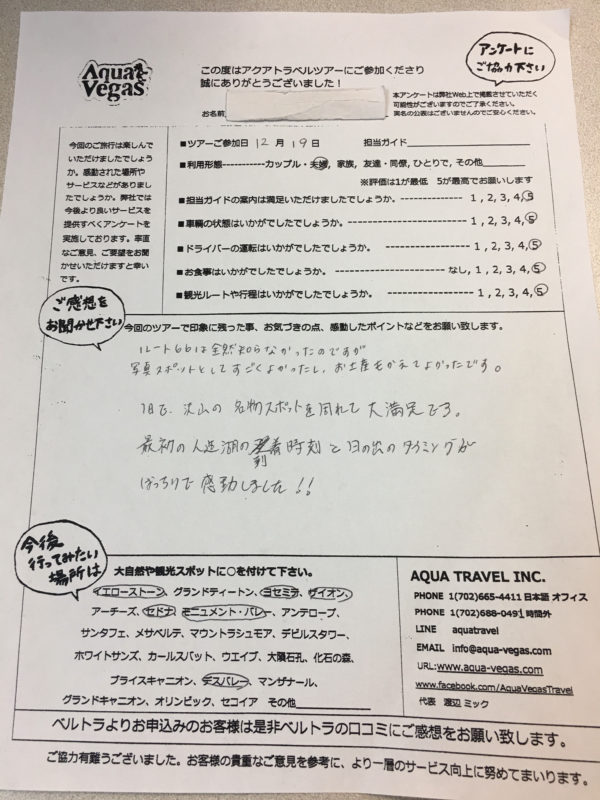 Aqua
Vegas
この度はアクアトラベルツアーにご参加くださり
誠にありがとうございました！
アンケートに
ご協力下さい
本アンケートは弊社Web上で掲載させていただく
可能性がございますのでご了承ください。
実名の公表はございませんのでご安心ください。
お名前
今回のご旅行は楽しんで
いただけましたでしょう
か。感動された場所や
サービスなどがありまし
たでしょうか。弊社では
今後より良いサービスを
提供すべくアンケートを
実施しております。率直
なご意見、ご要望をお聞
かせいただけますと幸い
です。
■ツアーご参加日 12 月 19 日 担当ガイド
■利用形態-----------カップル・夫婦, 家族, 友達・同僚, ひとりで, その他
※評価は1が最低 5が最高でお願いします
■担当ガイドの案内は満足いただけましたでしょうか。 --------------- 1 , 2, 3, 4, 5
■車輌の状態はいかがでしたでしょうか。 ---------------------- 1 , 2, 3, 4, 5
■ドライバーの運転はいかがでしたでしょうか。 ---------------- 1 , 2, 3, 4, 5
■お食事はいかがでしたでしょうか。 --------------------- なし, 1 , 2, 3, 4, 5
■観光ルートや行程はいかがでしたでしょうか。 ---------------- 1 , 2, 3, 4, 5
ご感想を
お聞かせ下さい
今回のツアーで印象に残った事、お気づきの点、感動したポイントなどをお願い致します。
ルート66は全然知らなかったのですが
写真スポットとしてすごくよかったし、お土産もかえてよかったです。
1日で、沢山の名物スポットを周れて大満足です。
最初の人造湖の到着時刻と日の出のタイミングが
ばっちりで感動しました!!
今後
行ってみたい
場所は
大自然や観光スポットに○を付けて下さい。
イエローストーン、グランドティートン、ヨセミテ、ザイオン、
アーチーズ、セドナ、モニュメント・バレー、アンテロープ、
サンタフェ、メサベルテ、マウントラシュモア、デビルスタワー、
ホワイトサンズ、カールスバット、ウエイブ、大隕石孔、化石の森、
ブライスキャニオン、デスバレー、マンザナール、
グランドキャニオン、オリンピック、セコイア その他
AQUA TRAVEL INC.
PHONE 1(702)665-4411 日本語 オフィス
PHONE 1(702)688-0491 時間外
LINE aquatravel
EMAIL info@aqua-vegas.com
URL:www.aqua-vegas.com
www.facebook.com/AquaVegasTravel
代表 渡辺 ミック
ベルトラよりお申込みのお客様は是非ベルトラの口コミにご感想をお願い致します。
ご協力有難うございました。お客様の貴重なご意見を参考に、より一層のサービス向上に努めてまいります。